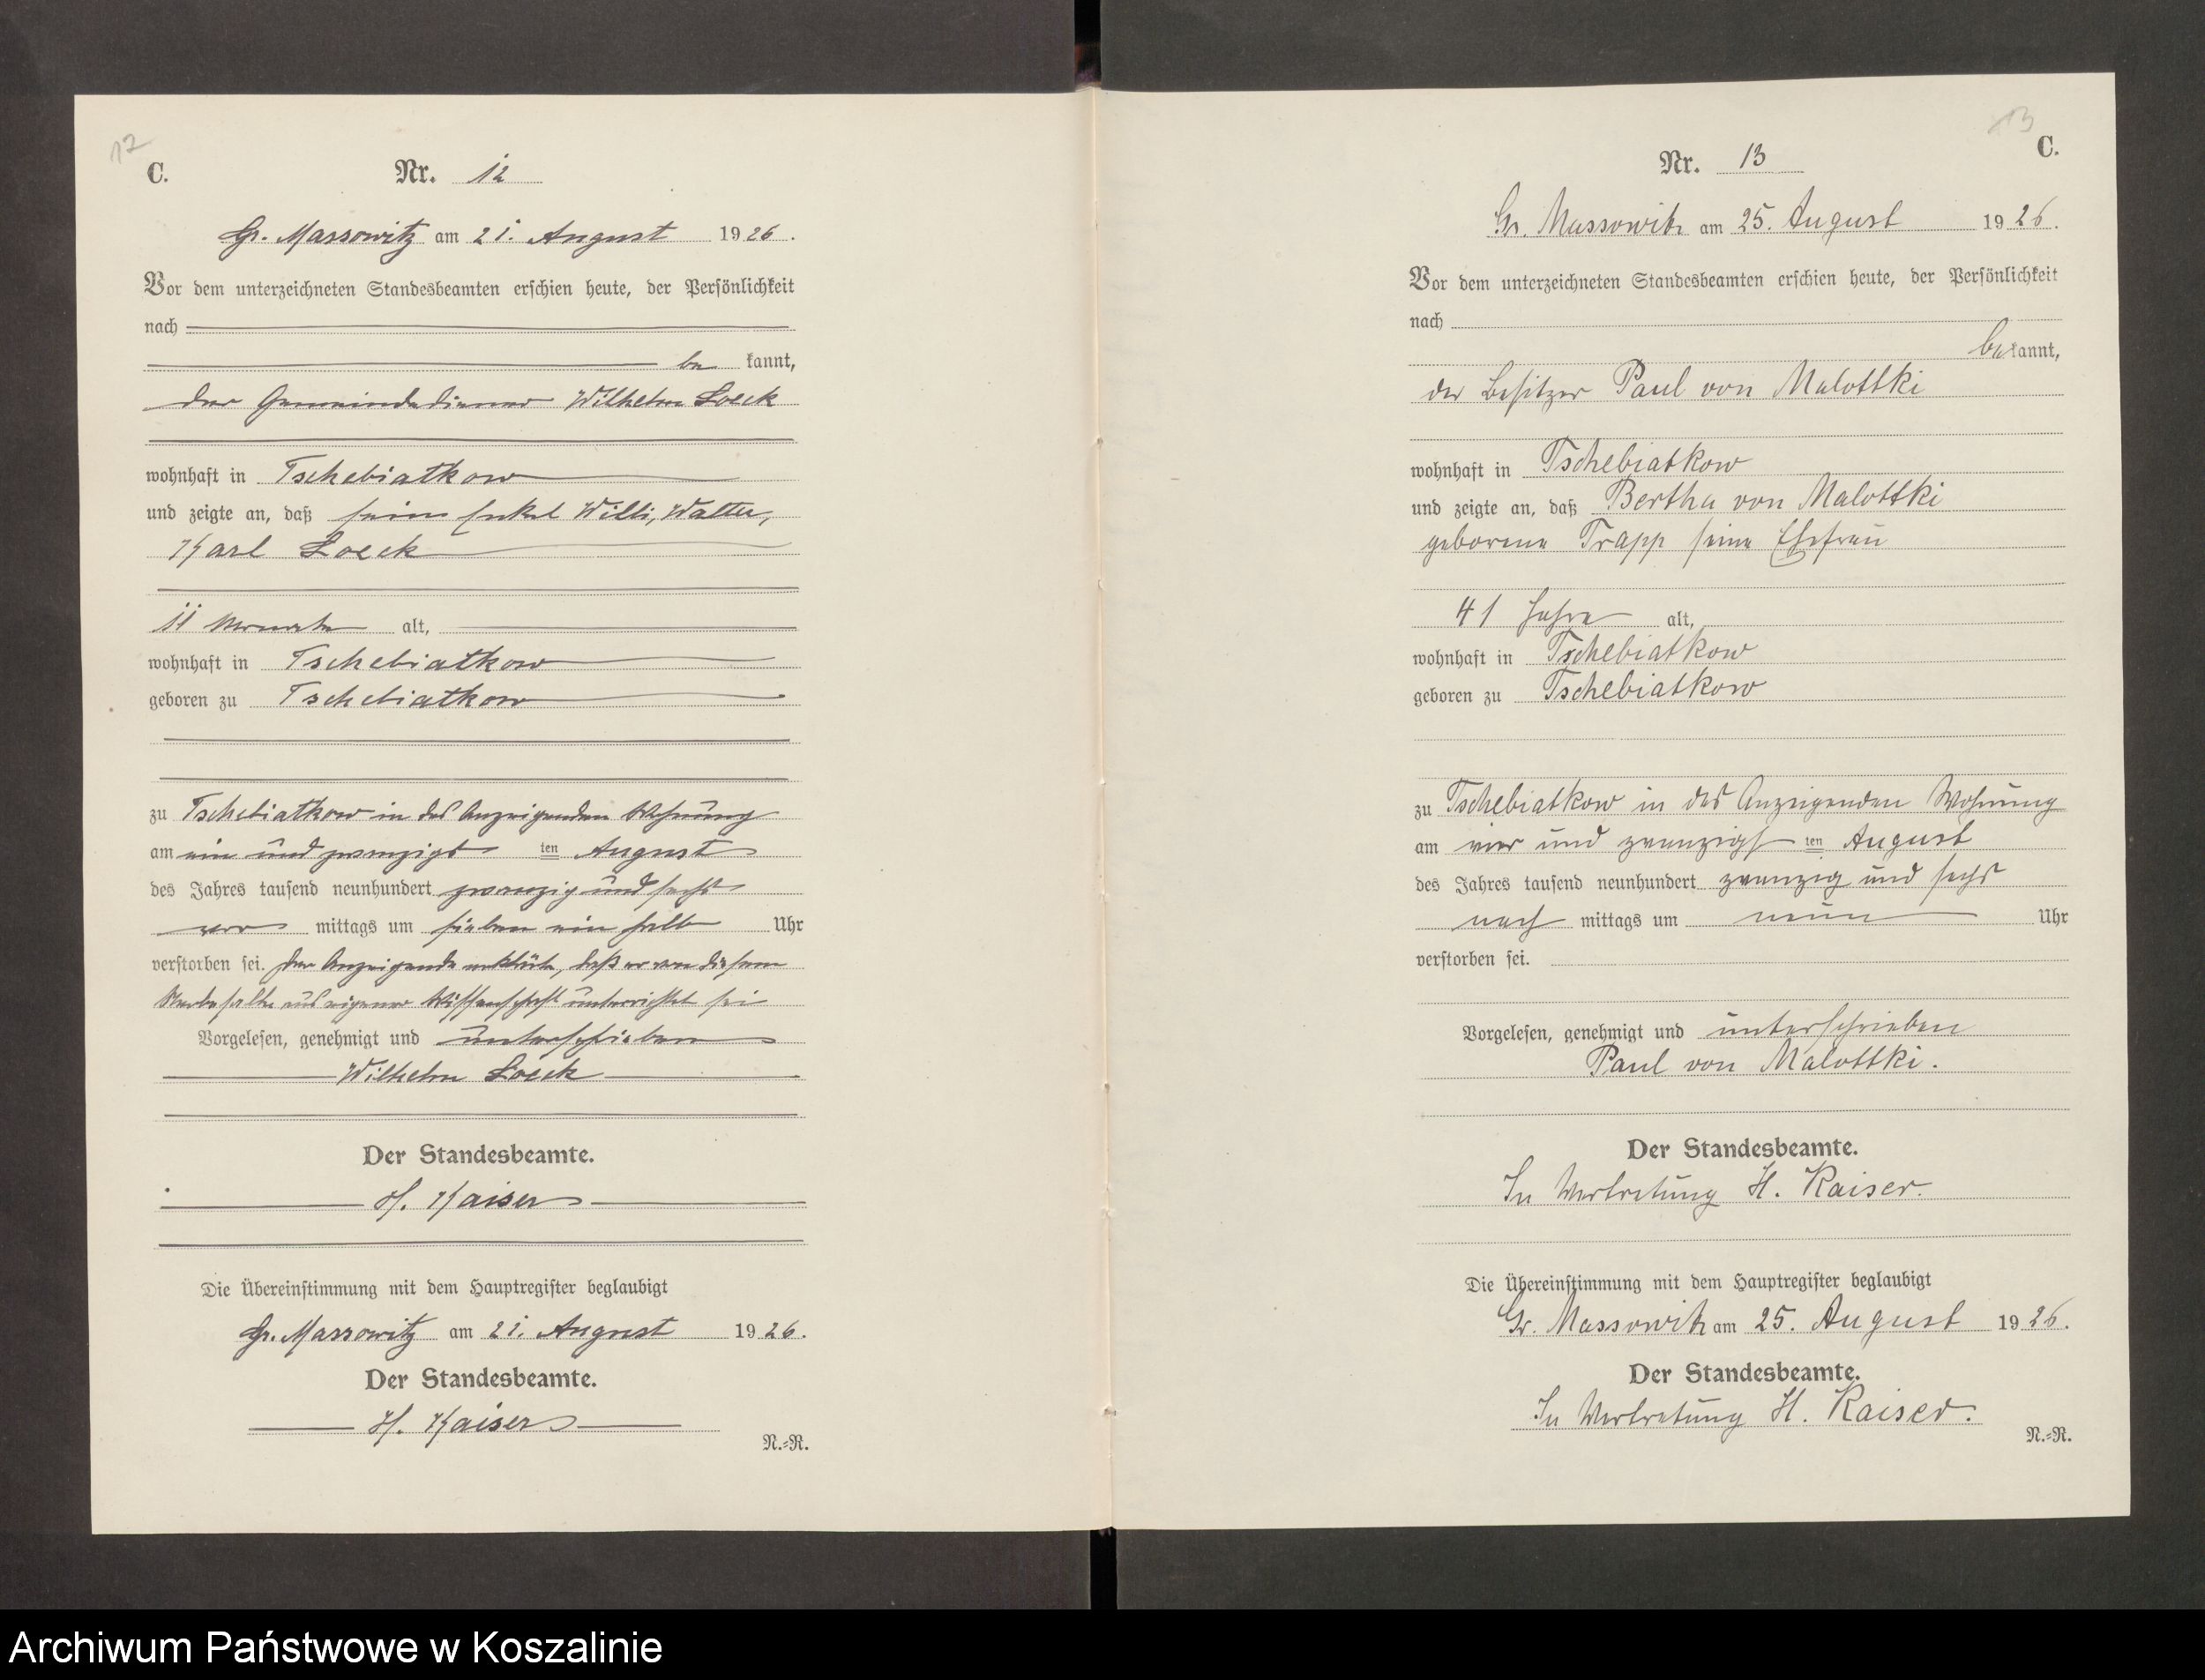 12
C.
Nr. 12
Gr. Massowitz am 21. August 1926.
Vor dem unterzeichneten Standesbeamten erschien heute, der Persönlichkeit
nach
be kannt,
der Gemeindediener Wilhelm Loeck
wohnhaft in Tschebiatkow
und zeigte an, daß sein Enkel Willi, Walter,
Karl Loeck
11 Monate alt,
wohnhaft in Tschebiatkow
geboren zu Tschebiatkow
zu Tschebiatkow in des Anzeigenden Wohnung
am ein und zwanzigs ten August
des Jahres tausend neunhundert zwanzig und sechs
vor mittags um sieben ein halb Uhr
verstorben sei. Der Anzeigende erklärte, daß er von diesem
Sterbefalle aus eigener Wissenschaft unterrichtet sei
Vorgelesen, genehmigt und unterschrieben
Wilhelm Loeck
Der Standesbeamte.
H. Kaiser
Die Übereinstimmung mit dem Hauptregister beglaubigt
Gr. Massowitz am 21. August 1926.
Der Standesbeamte.
H. Kaiser
N.=R.
13
C.
Nr. 13
Gr. Massowitz am 25. August 1926.
Vor dem unterzeichneten Standesbeamten erschien heute, der Persönlichkeit
nach
bekannt,
der Besitzer Paul von Malottki
wohnhaft in Tschebiatkow
und zeigte an, daß Bertha von Malottki
geborene Trapp seine Ehefrau
41 Jahre alt,
wohnhaft in Tschebiatkow
geboren zu Tschebiatkow
zu Tschebiatkow in des Anzeigenden Wohnung
am vier und zwanzigs ten August
des Jahres tausend neunhundert zwanzig und sechs
nach mittags um neun Uhr
verstorben sei.
Vorgelesen, genehmigt und unterschrieben
Paul von Malottki.
Der Standesbeamte.
In Vertretung H. Kaiser.
Die Übereinstimmung mit dem Hauptregister beglaubigt
Gr. Massowitz am 25. August 1926.
Der Standesbeamte.
In Vertretung H. Kaiser.
N.=R.
Archiwum Państwowe w Koszalinie